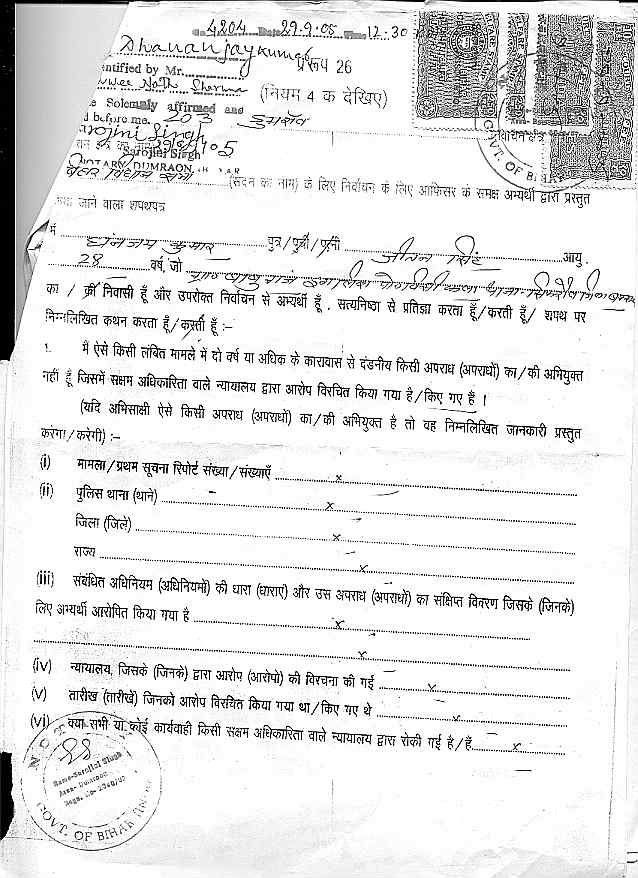 4204 Date 29.9.05 Time 12.30
Dhananjay kumar
entified by Mr.
प्ररूप 26
Nath Sharma
e Solemnly affirmed and
(नियम 4 क देखिए)
d before me. 203 डुमराँव
Sarojini Singh
निर्वाचन क्षेत्र
Sarojini Singh
NOTARY, DUMRAON
GOVT. OF BIHAR
विधान सभा (सदन का नाम) के लिए निर्वाचन के लिए आफिसर के समक्ष अभ्यर्थी द्वारा प्रस्तुत
किया जाने वाला शपथपत्र
मैं धनंजय कुमार पुत्र/पुत्री/पत्नी सिंह आयु
28 वर्ष, जो
का / की निवासी हूँ और उपरोक्त निर्वाचन से अभ्यर्थी हूँ, सत्यनिष्ठा से प्रतिज्ञा करता हूँ/करती हूँ/ शपथ पर
निम्नलिखित कथन करता हूँ/करती हूँ :-
१. मैं ऐसे किसी लंबित मामले में दो वर्ष या अधिक के कारावास से दंडनीय किसी अपराध (अपराधों) का/की अभियुक्त
नहीं हूँ जिसमें सक्षम अधिकारिता वाले न्यायालय द्वारा आरोप विरचित किया गया है/किए गए हैं ।
(यदि अभिसाक्षी ऐसे किसी अपराध (अपराधों) का/की अभियुक्त है तो वह निम्नलिखित जानकारी प्रस्तुत
करेगा/करेगी) :-
(i) मामला/प्रथम सूचना रिपोर्ट संख्या/संख्याएँ x
(ii) पुलिस थाना (थाने) x
जिला (जिले) x
राज्य x
(iii) संबंधित अधिनियम (अधिनियमों) की धारा (धाराएं) और उस अपराध (अपराधों) का संक्षिप्त विवरण जिसके (जिनके)
लिए अभ्यर्थी आरोपित किया गया है x
x
(iv) न्यायालय, जिसके (जिनके) द्वारा आरोप (आरोपो) की विरचना की गई x
(v) तारीख (तारीखें) जिनको आरोप विरचित किया गया था/किए गए थे x
(vi) क्या सभी या कोई कार्यवाही किसी सक्षम अधिकारिता वाले न्यायालय द्वारा रोकी गई है/हैं x
NOT
Name-Sarojini Singh
Area- Dumraon
GOVT. OF BIHAR